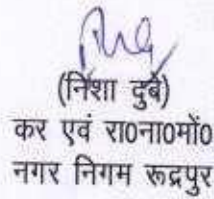 (निशा दुबे)
कर एवं रा0ना0मों0
नगर निगम रूद्रपुर